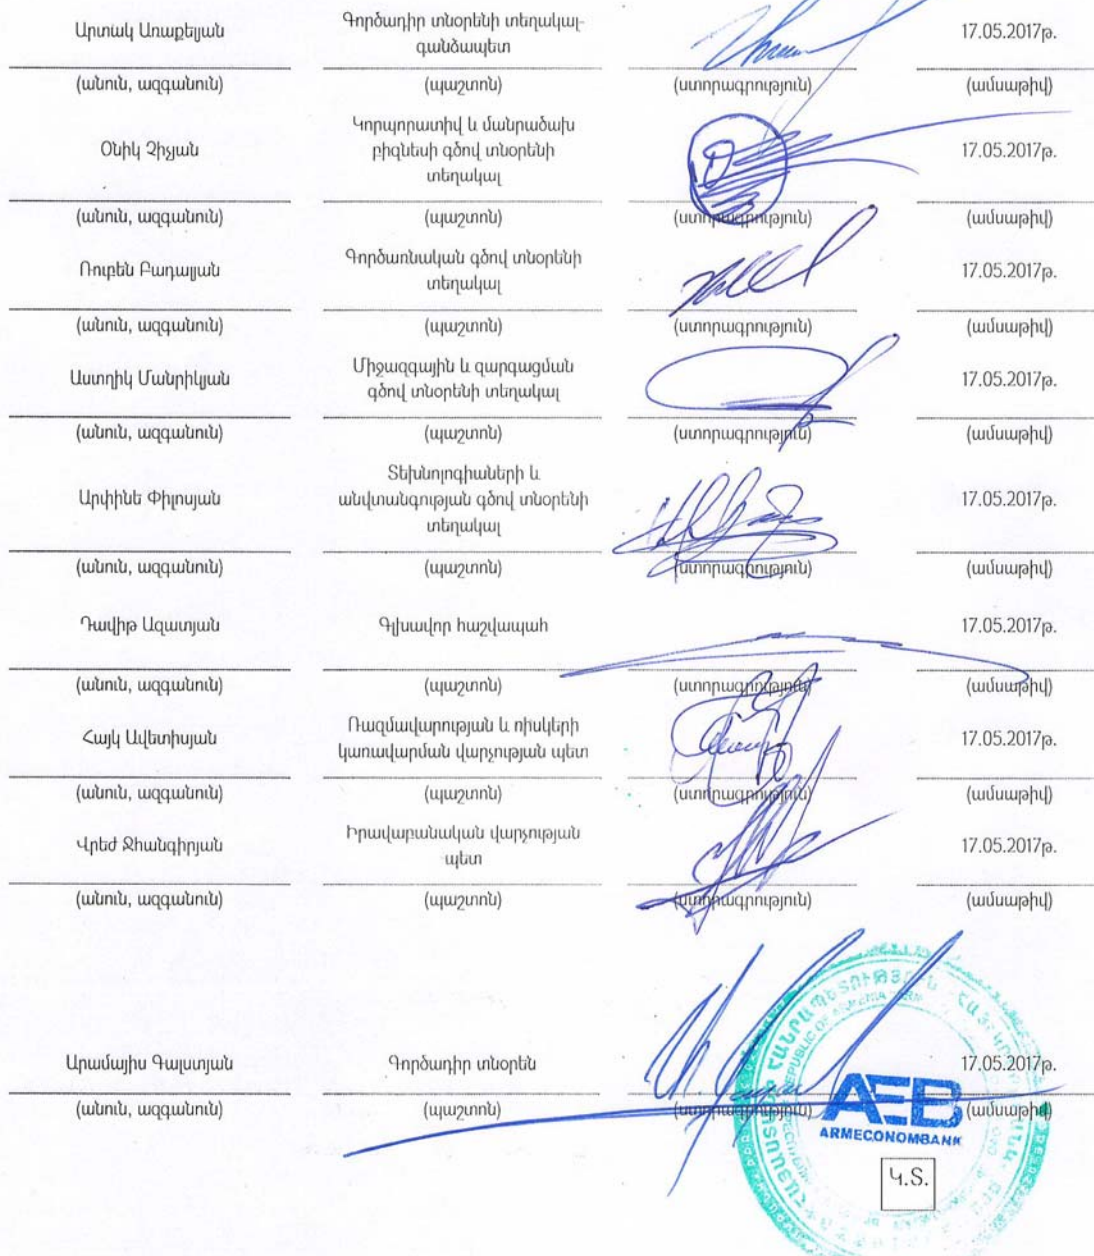 Արտակ Առաքելյան
Գործադիր տնօրենի տեղակալ-
գանձապետ
17.05.2017թ.
(անուն, ազգանուն) (պաշտոն) (ստորագրություն) (ամսաթիվ)
Օնիկ Չիչյան
Կորպորատիվ և մանրածախ
բիզնեսի գծով տնօրենի
տեղակալ
17.05.2017թ.
(անուն, ազգանուն) (պաշտոն) (ստորագրություն) (ամսաթիվ)
Ռուբեն Բադալյան
Գործառնական գծով տնօրենի
տեղակալ
17.05.2017թ.
(անուն, ազգանուն) (պաշտոն) (ստորագրություն) (ամսաթիվ)
Աստղիկ Մանրիկյան
Միջազգային և զարգացման
գծով տնօրենի տեղակալ
17.05.2017թ.
(անուն, ազգանուն) (պաշտոն) (ստորագրություն) (ամսաթիվ)
Արփինե Փիլոսյան
Տեխնոլոգիաների և
անվտանգության գծով տնօրենի
տեղակալ
17.05.2017թ.
(անուն, ազգանուն) (պաշտոն) (ստորագրություն) (ամսաթիվ)
Դավիթ Ազատյան
Գլխավոր հաշվապահ
17.05.2017թ.
(անուն, ազգանուն) (պաշտոն) (ստորագրություն) (ամսաթիվ)
Հայկ Ավետիսյան
Ռազմավարության և ռիսկերի
կառավարման վարչության պետ
17.05.2017թ.
(անուն, ազգանուն) (պաշտոն) (ստորագրություն) (ամսաթիվ)
Վրեժ Ջհանգիրյան
Իրավաբանական վարչության
պետ
17.05.2017թ.
(անուն, ազգանուն) (պաշտոն) (ստորագրություն) (ամսաթիվ)
Արամայիս Գալստյան
Գործադիր տնօրեն
17.05.2017թ.
(անուն, ազգանուն) (պաշտոն) (ստորագրություն) (ամսաթիվ)
AEB
ARMECONOMBANK
Կ.Տ.